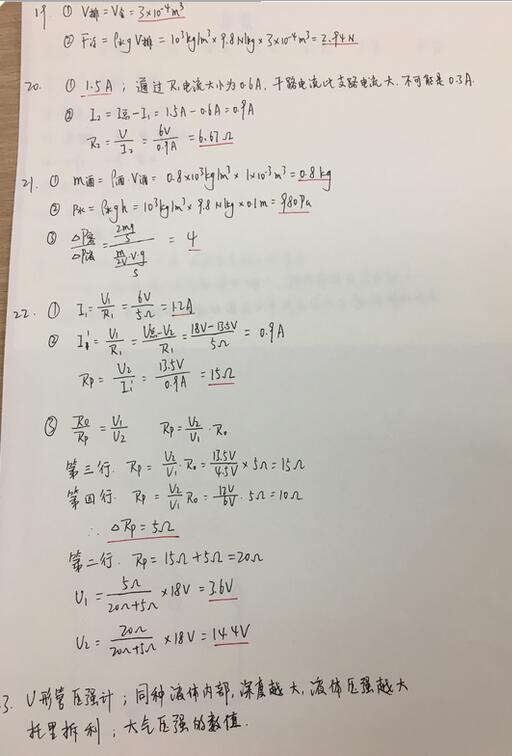 19. ① V排=V金=3×10⁻⁴m³
② F浮=ρ水gV排=10³kg/m³×9.8N/kg×3×10⁻⁴m³=2.94N
20. ① 1.5A；通过R₁电流大小为0.6A，干路电流比支路电流大，不可能是0.3A.
② I₂=I总-I₁=1.5A-0.6A=0.9A
R₂=U/I₂=6V/0.9A=6.67Ω
21. ① m酒=ρ酒·V酒=0.8×10³kg/m³×1×10⁻³m³=0.8kg
② P水=ρ水gh=10³kg/m³×9.8N/kg×0.1m=980Pa
③ ΔP容/ΔP液=(2mg/S)/((m/2V·V·g)/S)=4
22. ① I₁=U₁/R₁=6V/5Ω=1.2A
② I₁'=U₁/R₁=(U总-U₂)/R₁=(18V-13.5V)/5Ω=0.9A
Rp=U₂/I₁'=13.5V/0.9A=15Ω
③ R₀/Rp=U₁/U₂ Rp=U₂/U₁·R₀
第三行. Rp=U₂/U₁·R₀=13.5V/4.5V×5Ω=15Ω
第四行. Rp=U₂/U₁R₀=12V/6V·5Ω=10Ω
∴ΔRp=5Ω
第二行. Rp=15Ω+5Ω=20Ω
U₁=5Ω/(20Ω+5Ω)×18V=3.6V
U₂=20Ω/(20Ω+5Ω)×18V=14.4V
3. U形管压强计；同种液体内部，深度越大，液体压强越大
托里拆利；大气压强的数值.